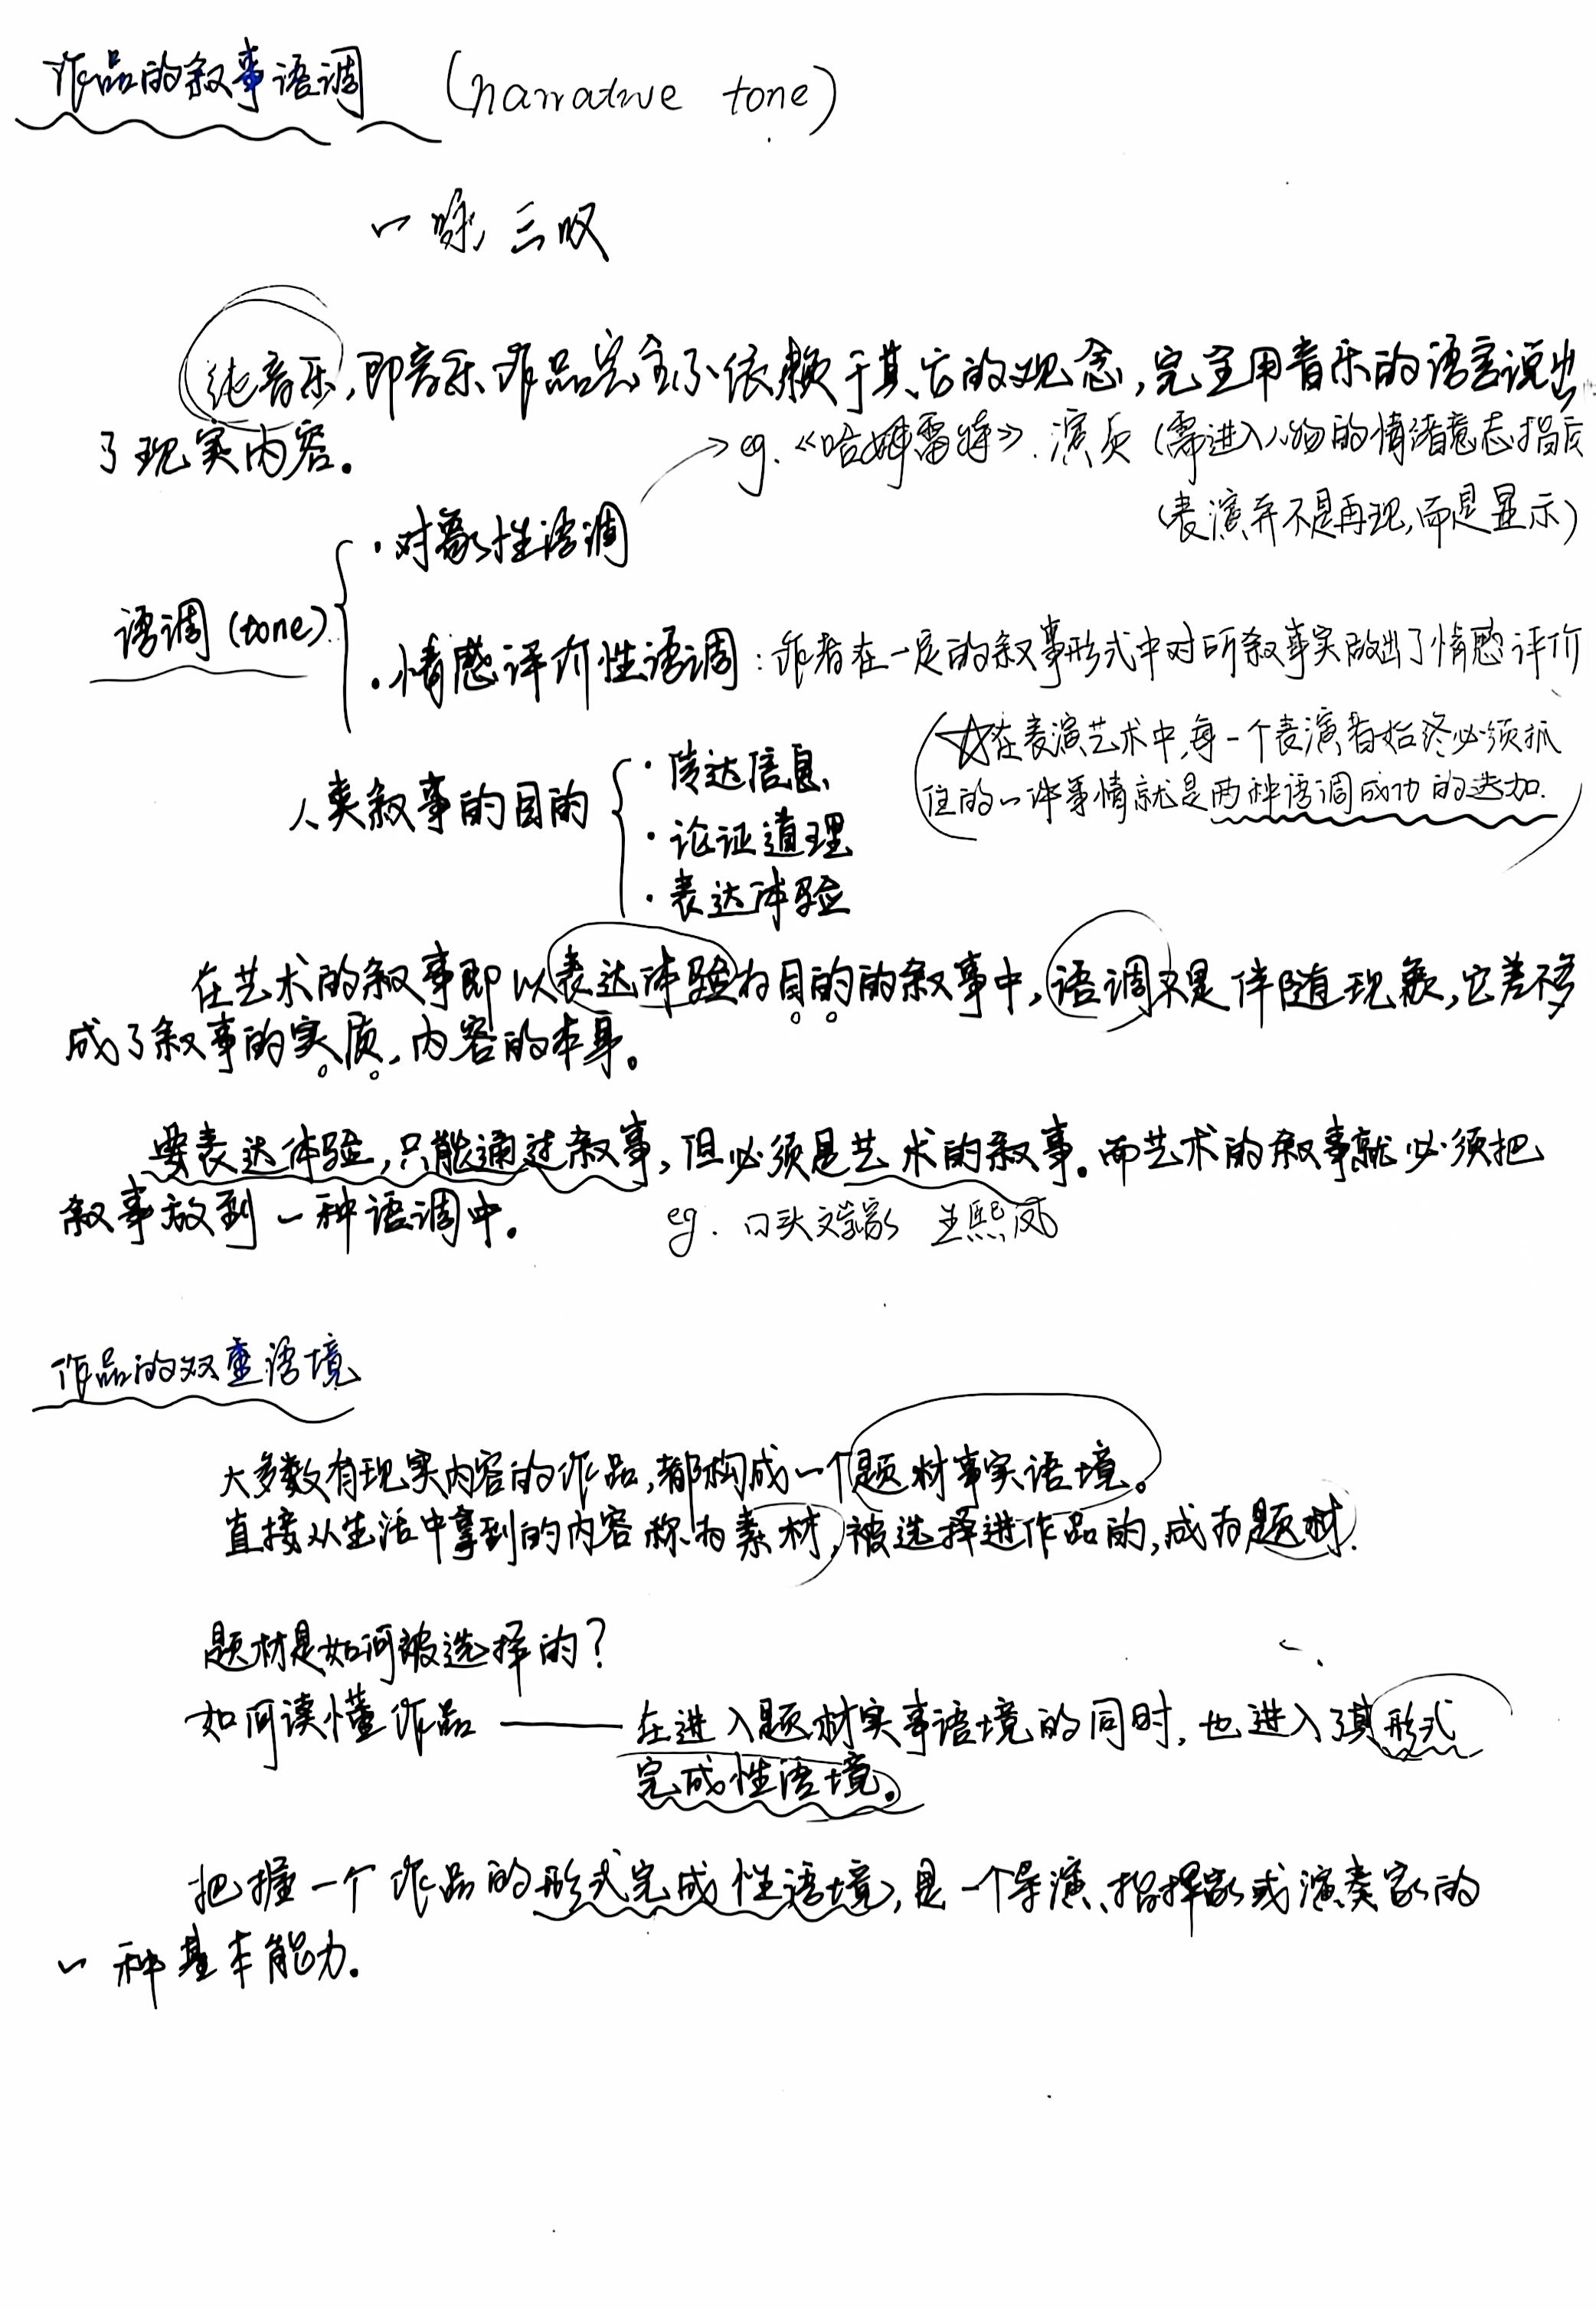 作品的叙事语调 (narrative tone)
一咏三叹
纯音乐,即音乐作品完全不依赖于其它的观念,完全用音乐的语言说出
了现实内容。
→eg.《哈姆雷特》.演员(需进入人物的情绪意志
(表演并不是再现,而是显示)
语调(tone)
·对象性语调
·情感评价性语调:作者在一定的叙事形式中对所叙事实做出了情感评价
(☆在表演艺术中,每一个表演者始终必须抓
住的一件事情就是两种语调成功的迭加.)
人类叙事的目的
·传达信息
·论证道理
·表达体验
在艺术的叙事即以表达体验为目的的叙事中,语调不是伴随现象,它差不多
成了叙事的实质,内容的本身。
要表达体验,只能通过叙事,但必须是艺术的叙事。而艺术的叙事就必须把
叙事放到一种语调中。
eg. 口头文学家 王熙凤
作品的双重语境
大多数有现实内容的作品,都构成一个题材事实语境。
直接从生活中拿到的内容称为素材,被选择进作品的,成为题材.
题材是如何被选择的?
如何读懂作品——在进入题材实事语境的同时,也进入了其形式
完成性语境。
把握一个作品的形式完成性语境,是一个导演、指挥家或演奏家的
一种基本能力.